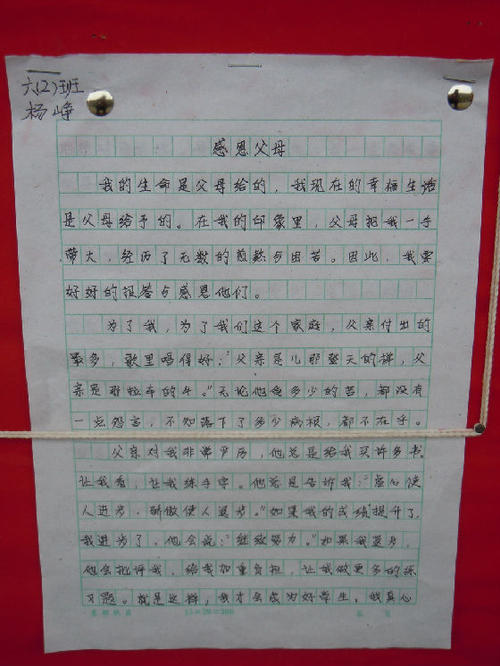 六(2)班
杨峥
感恩父母
我的生命是父母给的，我现在的幸福生活
是父母给予的。在我的印象里，父母把我一手
带大，经历了无数的煎熬与困苦。因此，我要
好好的报答与感恩他们。
为了我，为了我们这个家庭，父亲付出的
最多，歌里唱得好：“父亲是儿那登天的梯，父
亲是那拉车的牛。”无论他食多少的苦，都没有
一点怨言，不知落下了多少病根，都不在乎。
父亲对我非常严厉，他总是给我买许多书
让我看，让我练手字。他总是告诉我：“虚心使
人进步，骄傲使人退步。”如果我的成绩提升了，
我进步了，他会说：“继续努力。”如果我退步，
他会批评我，给我加重负担，让我做更多的练
习题。就是这样，我才会成为好学生，我真心